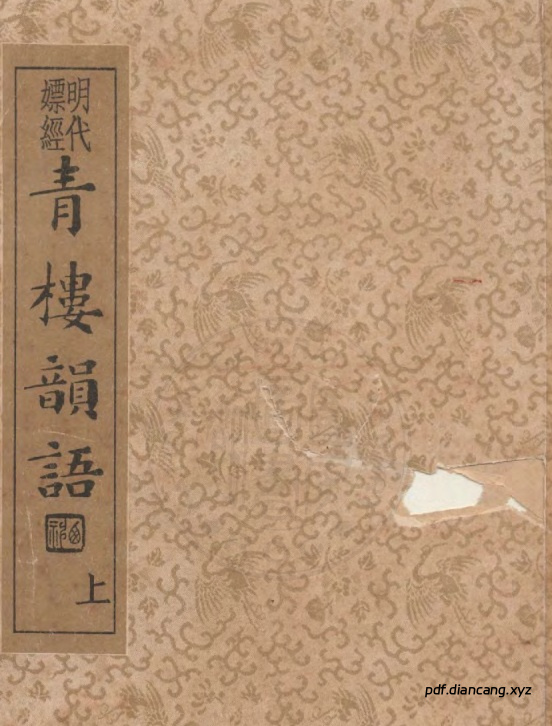 明代
嫖經
青樓韻語
上
pdf.diancang.xyz